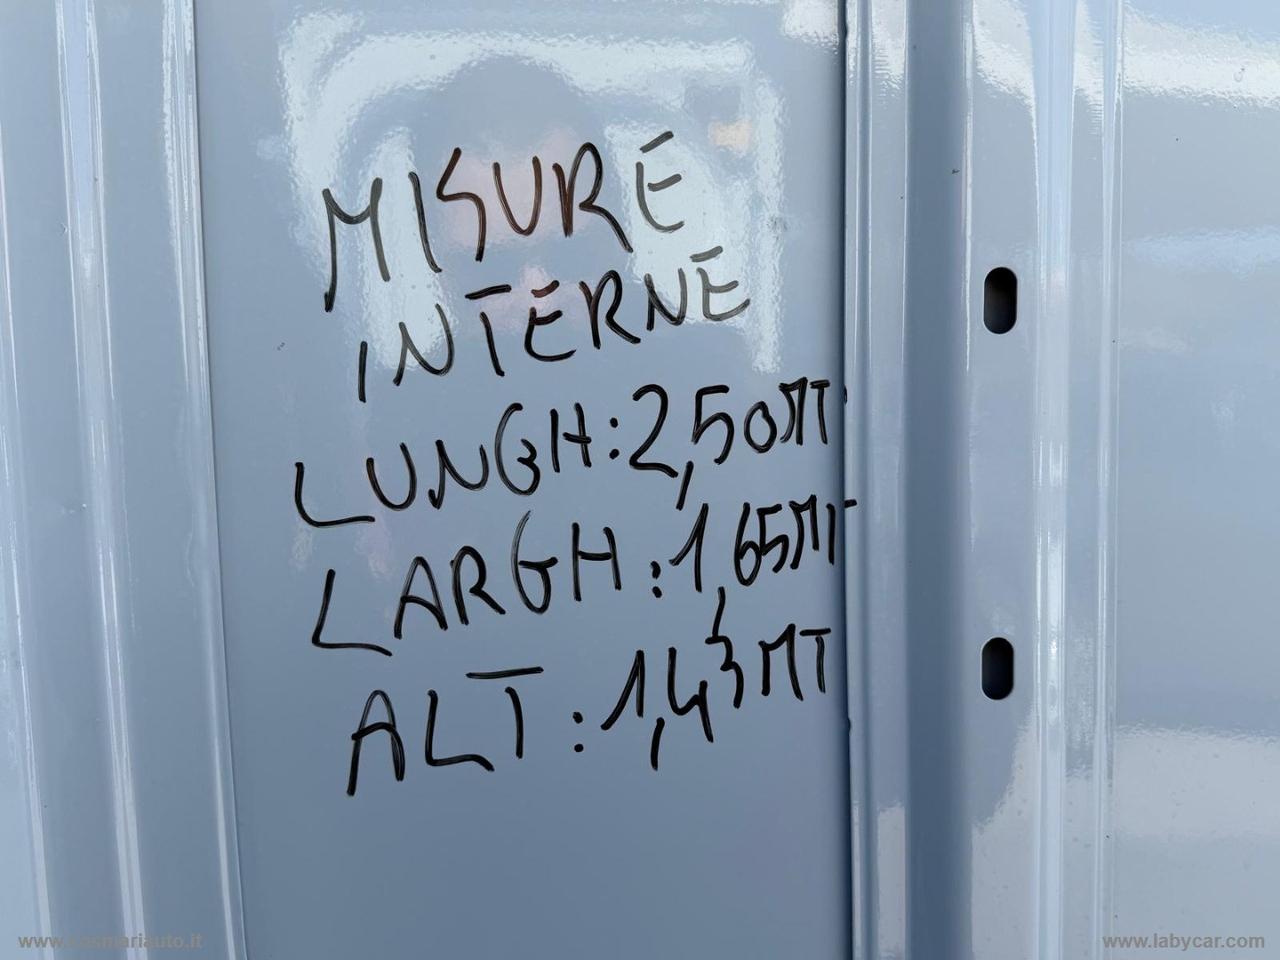 MISURE
INTERNE
LUNGH: 2,50 MT
LARGH: 1,65 MT
ALT: 1,43 MT
www.cosmariauto.it
www.labycar.com